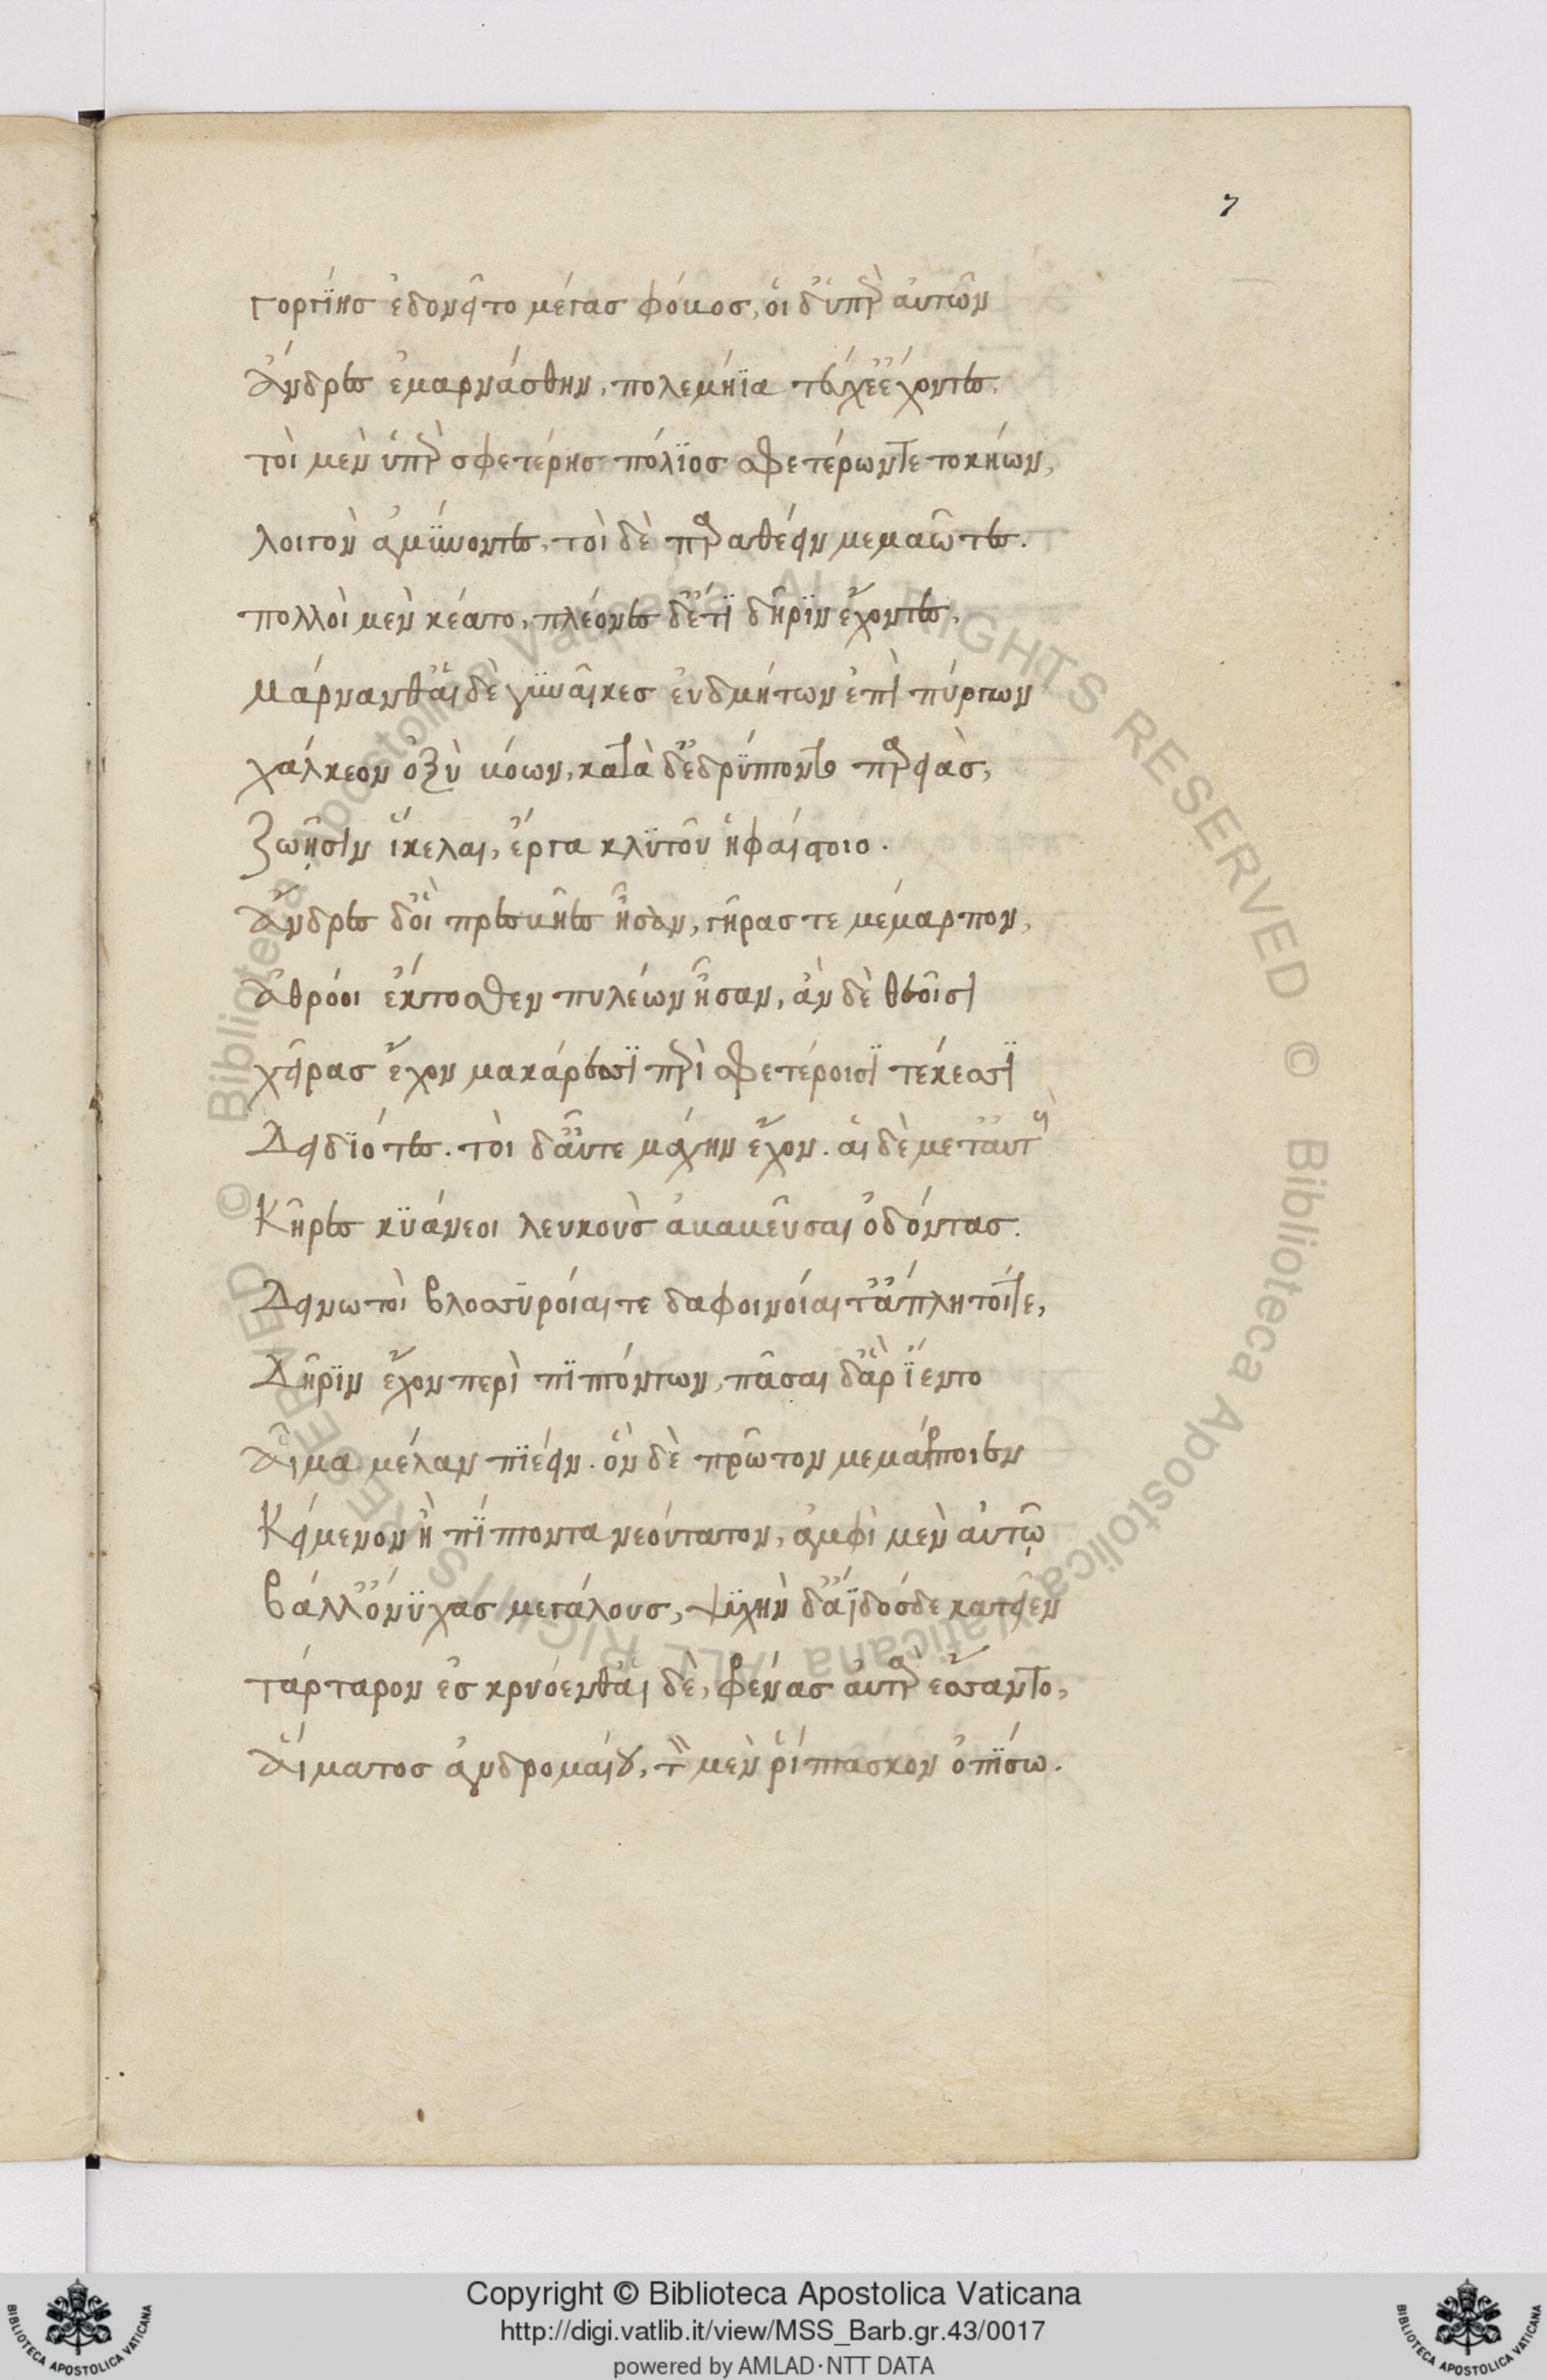 7
γοργίησ ἐδονεῖτο μέγασ φόνοσ, οἱ δ' ὑπὲρ αὐτῶν
Ἄνδρες ἐμαρνάσθην, πολεμήϊα τεύχε' ἔχοντες.
τοὶ μὲν ὑπὲρ σφετέρησ πόλϊοσ σφετέρωντε τοκήων,
λοιγὸν ἀμύνοντες, τοὶ δὲ πραθέειν μεμαῶτες.
πολλοὶ μὲν κέατο, πλέονες δ' ἔτϊ δῆρϊν ἔχοντες,
μάρνανθ' αἱ δὲ γϋναῖκεσ ἐυδμήτων ἐπὶ πύργων
χάλκεον ὀξὺ νόων, κατὰ δ' ἐδρύπτοντο παρειὰσ,
ζωῇσιν ἴκελαι, ἔργα κλϋτοῦ ἡφαίστοιο.
Ἄνδρες δ' οἳ πρεσνῆες ἦσαν, γῆρασ τε μέμαρπον,
Ἀθρόοι ἔκτοσθεν πυλέων ἦσαν, ἀν δὲ θεοῖσι
χεῖρασ ἔχον μακάρεσσϊ περὶ σφετέροισϊ τέκεσσϊ
Δειδϊότες. τοὶ δ' αὖτε μάχην ἔχον. αἱ δὲ μετ' αὐτοὺς
Κῆρες κϋάνεοι λευκοὺσ ἀνακεῦσαι ὀδόντασ.
Δεινωποὶ βλοσϋροίαιτε δαφοινοίαι τ' ἄπλητοίτε,
Δῆρϊν ἔχον περὶ πϊπτόντων, πᾶσαι δ' ἂρ ἵεντο
Αἷμα μέλαν πϊέειν. ὃν δὲ πρῶτον μεμάποιεν
Κείμενον ἢ πίπτοντα νεούτατον, ἀμφὶ μὲν αὐτῷ
βάλλ' ὄνϋχασ μεγάλουσ, ψϋχὴν δ' ἄϊδόσδε κατεῖεν
τάρταρον ἐσ κρυόενθ' αἱ δὲ, φρένασ αὐτὰρ εὖσαντο,
Αἵματοσ ἀνδρομαίου, τὸν μὲν ῥίπτασκον ὀπίσω.
Copyright © Biblioteca Apostolica Vaticana
http://digi.vatlib.it/view/MSS_Barb.gr.43/0017
powered by AMLAD·NTT DATA